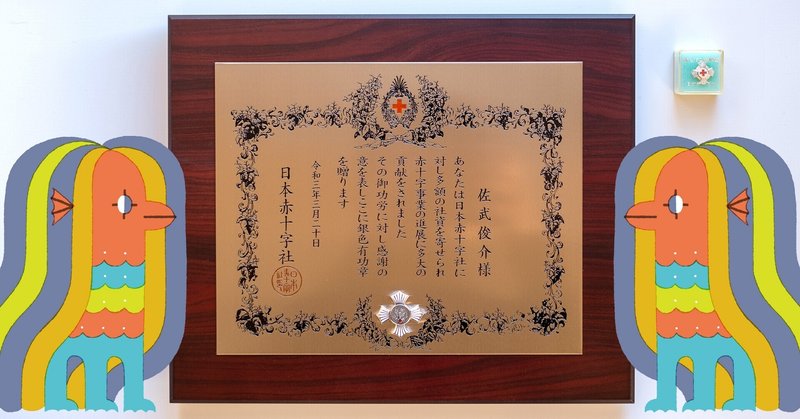 佐武俊介様
あなたは日本赤十字社に
対し多額の社資を寄せられ
赤十字事業の進展に多大の
貢献をされました
その御功労に対し感謝の
意を表しここに銀色有功章
を贈ります
令和三年三月二十日
日本赤十字社